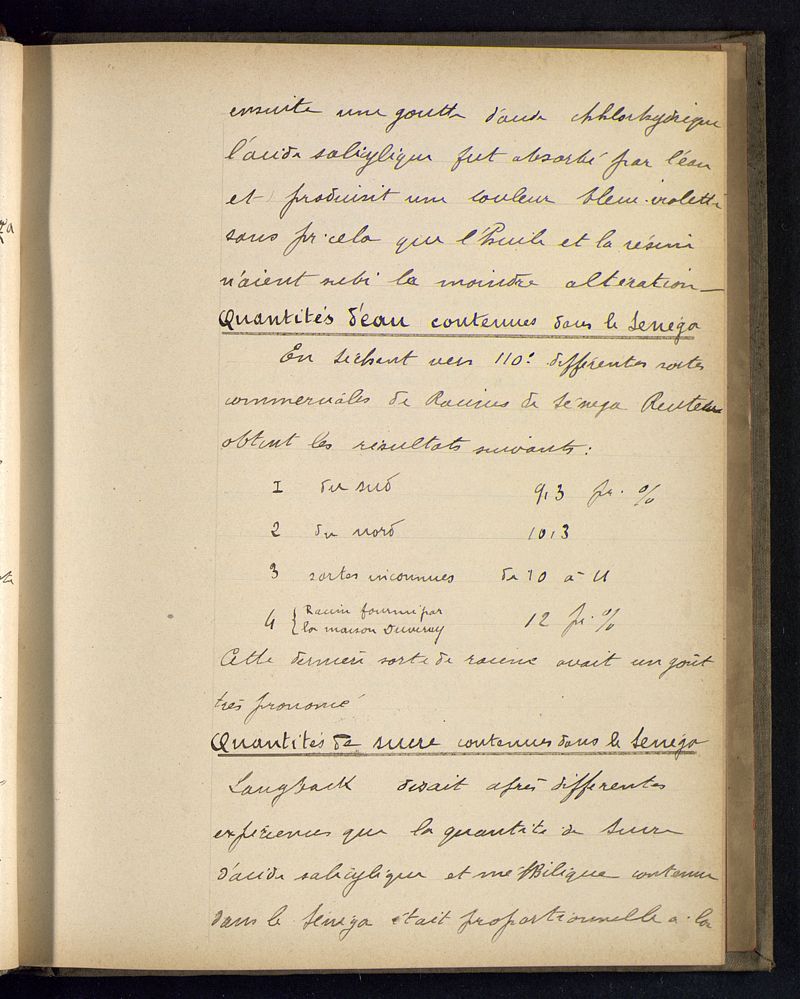 ensuite une goutte d'acide chhlorhydrique
l'acide salicylique fut absorbé par l'eau
et produisit une couleur bleue-violette
sans pr cela que l'huile et la résine
n'aient subi la moindre altération_
Quantités d'eau contenues dans le Senéga
En séchant vers 110° différentes sortes
commerciales de Racines de Sénéga Reuter
obtint les résultats suivants :
1 du sud 9,3 pr. %
2 du nord 10,3
3 sortes inconnues de 10 à 11
4 { Racine fournie par
la maison Duveray 12 pr. %
Cette dernière sorte de racine avait un goût
très prononcé
Quantités de sucre contenues dans le Senéga
Langback disait après différentes
expériences que la quantité de sucre
d'acide salicylique et méthilique contenue
dans le Sénéga était proportionnelle à la